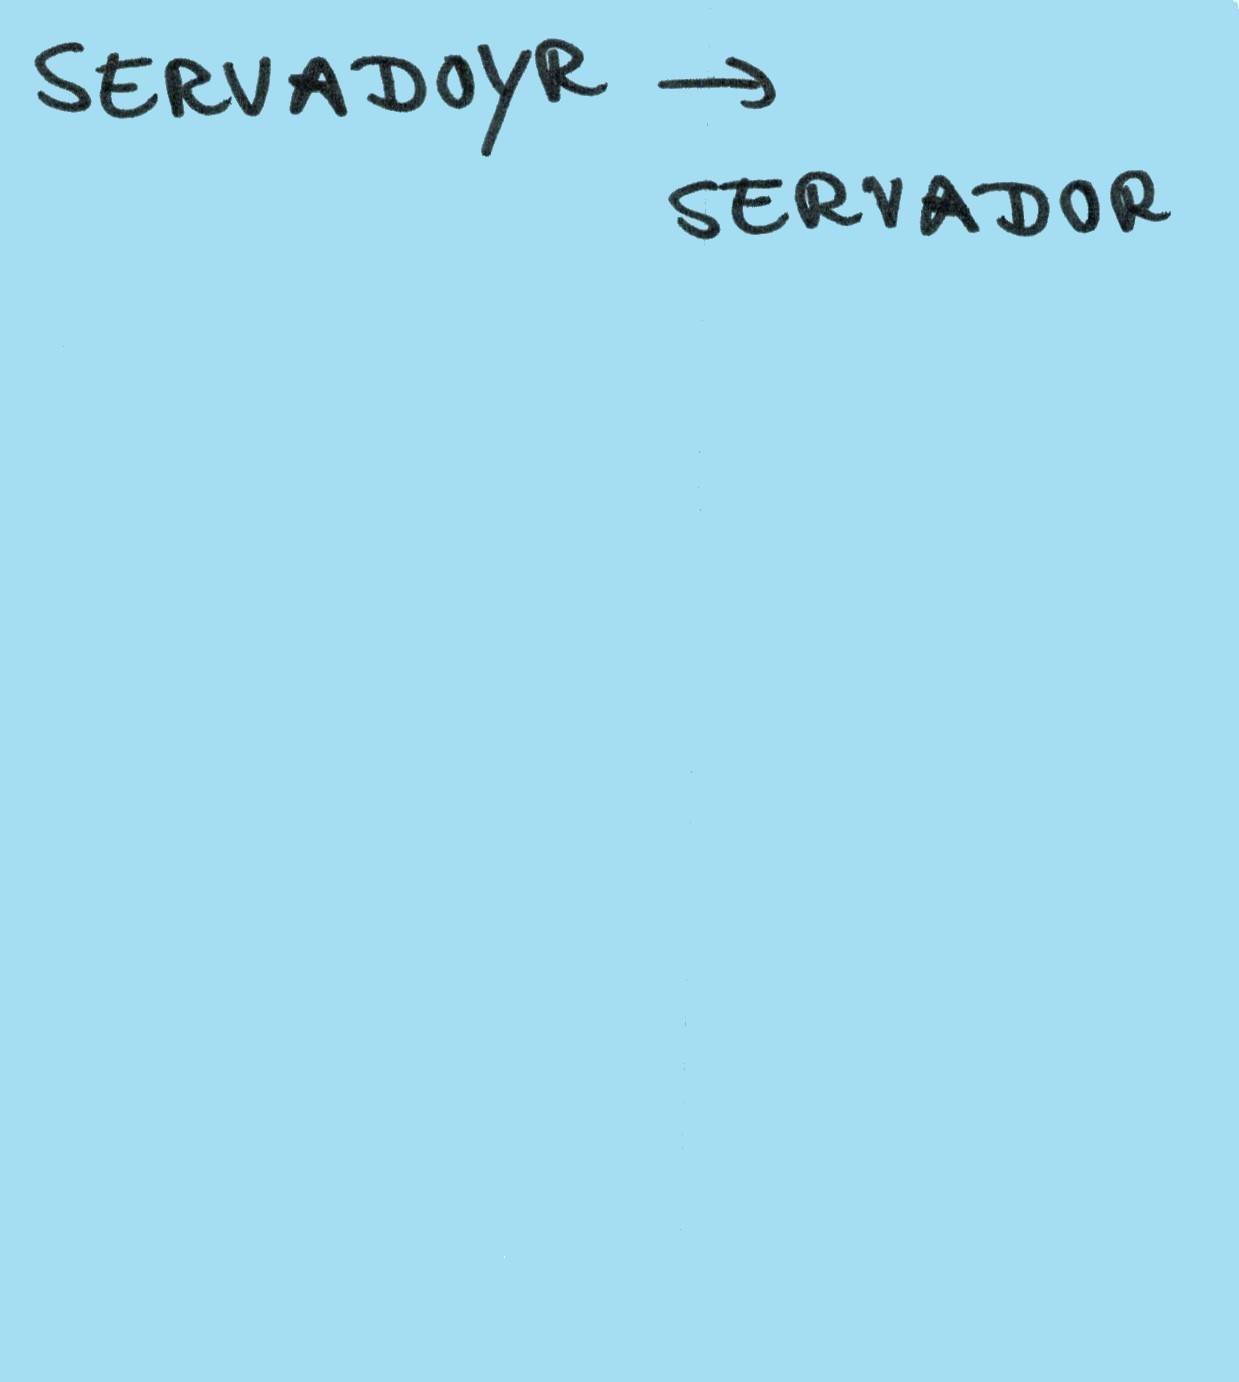 SERVADOYR →
SERVADOR